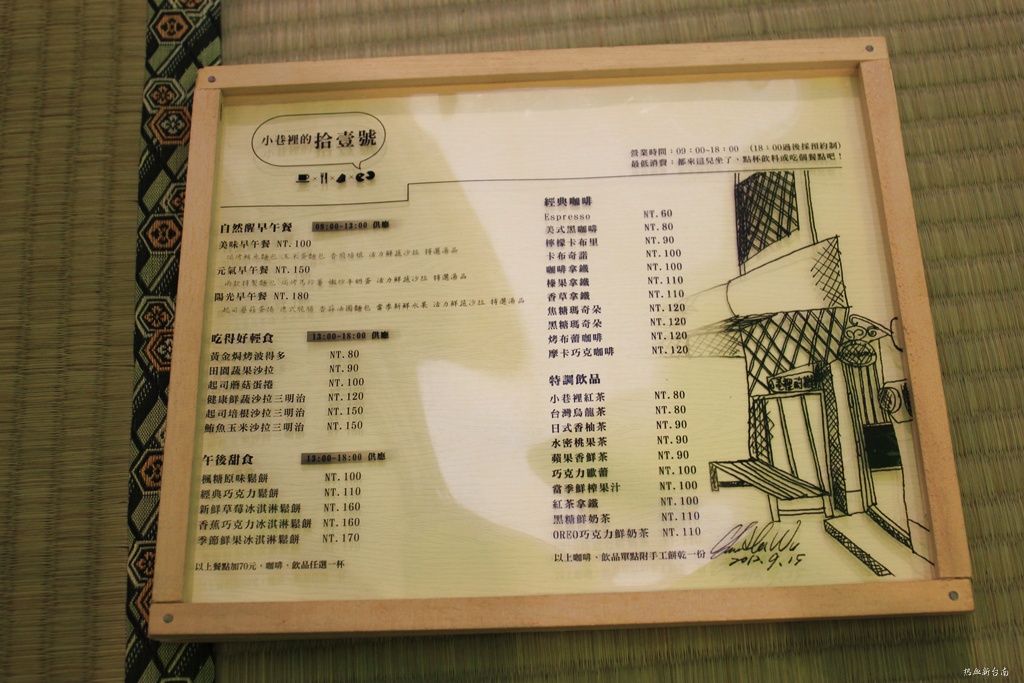 小巷裡的拾壹號
營業時間：09：00~18：00 （18：00過後採預約制）
最低消費：都來這兒坐了，點杯飲料或吃個餐點吧！
自然醒早午餐 09:00-13:00 供應
美味早午餐 NT.100
活力鮮蔬沙拉 精選湯品
元氣早午餐 NT.150
活力鮮蔬沙拉 精選湯品
陽光早午餐 NT.180
當季新鮮水果 活力鮮蔬沙拉 精選湯品
吃得好輕食 13:00-18:00 供應
黃金焗烤波得多 NT.80
田園蔬果沙拉 NT.90
起司蘑菇蛋捲 NT.100
健康鮮蔬沙拉三明治 NT.120
起司培根沙拉三明治 NT.150
鮪魚玉米沙拉三明治 NT.150
午後甜食 13:00-18:00 供應
楓糖原味鬆餅 NT.100
經典巧克力鬆餅 NT.110
新鮮草莓冰淇淋鬆餅 NT.160
香蕉巧克力冰淇淋鬆餅 NT.160
季節鮮果冰淇淋鬆餅 NT.170
以上餐點加70元，咖啡、飲品任選一杯
經典咖啡
Espresso NT.60
美式黑咖啡 NT.80
檸檬卡布里 NT.90
卡布奇諾 NT.100
咖啡拿鐵 NT.100
榛果拿鐵 NT.110
香草拿鐵 NT.110
焦糖瑪奇朵 NT.120
黑糖瑪奇朵 NT.120
烤布蕾咖啡 NT.120
摩卡巧克咖啡 NT.120
特調飲品
小巷裡紅茶 NT.80
台灣烏龍茶 NT.80
日式香柚茶 NT.90
水密桃果茶 NT.90
蘋果香鮮茶 NT.90
巧克力歐蕾 NT.100
當季鮮榨果汁 NT.100
紅茶拿鐵 NT.100
黑糖鮮奶茶 NT.110
OREO巧克力鮮奶茶 NT.110
以上咖啡、飲品單點附手工餅乾一份
2012.9.15
热血新台南